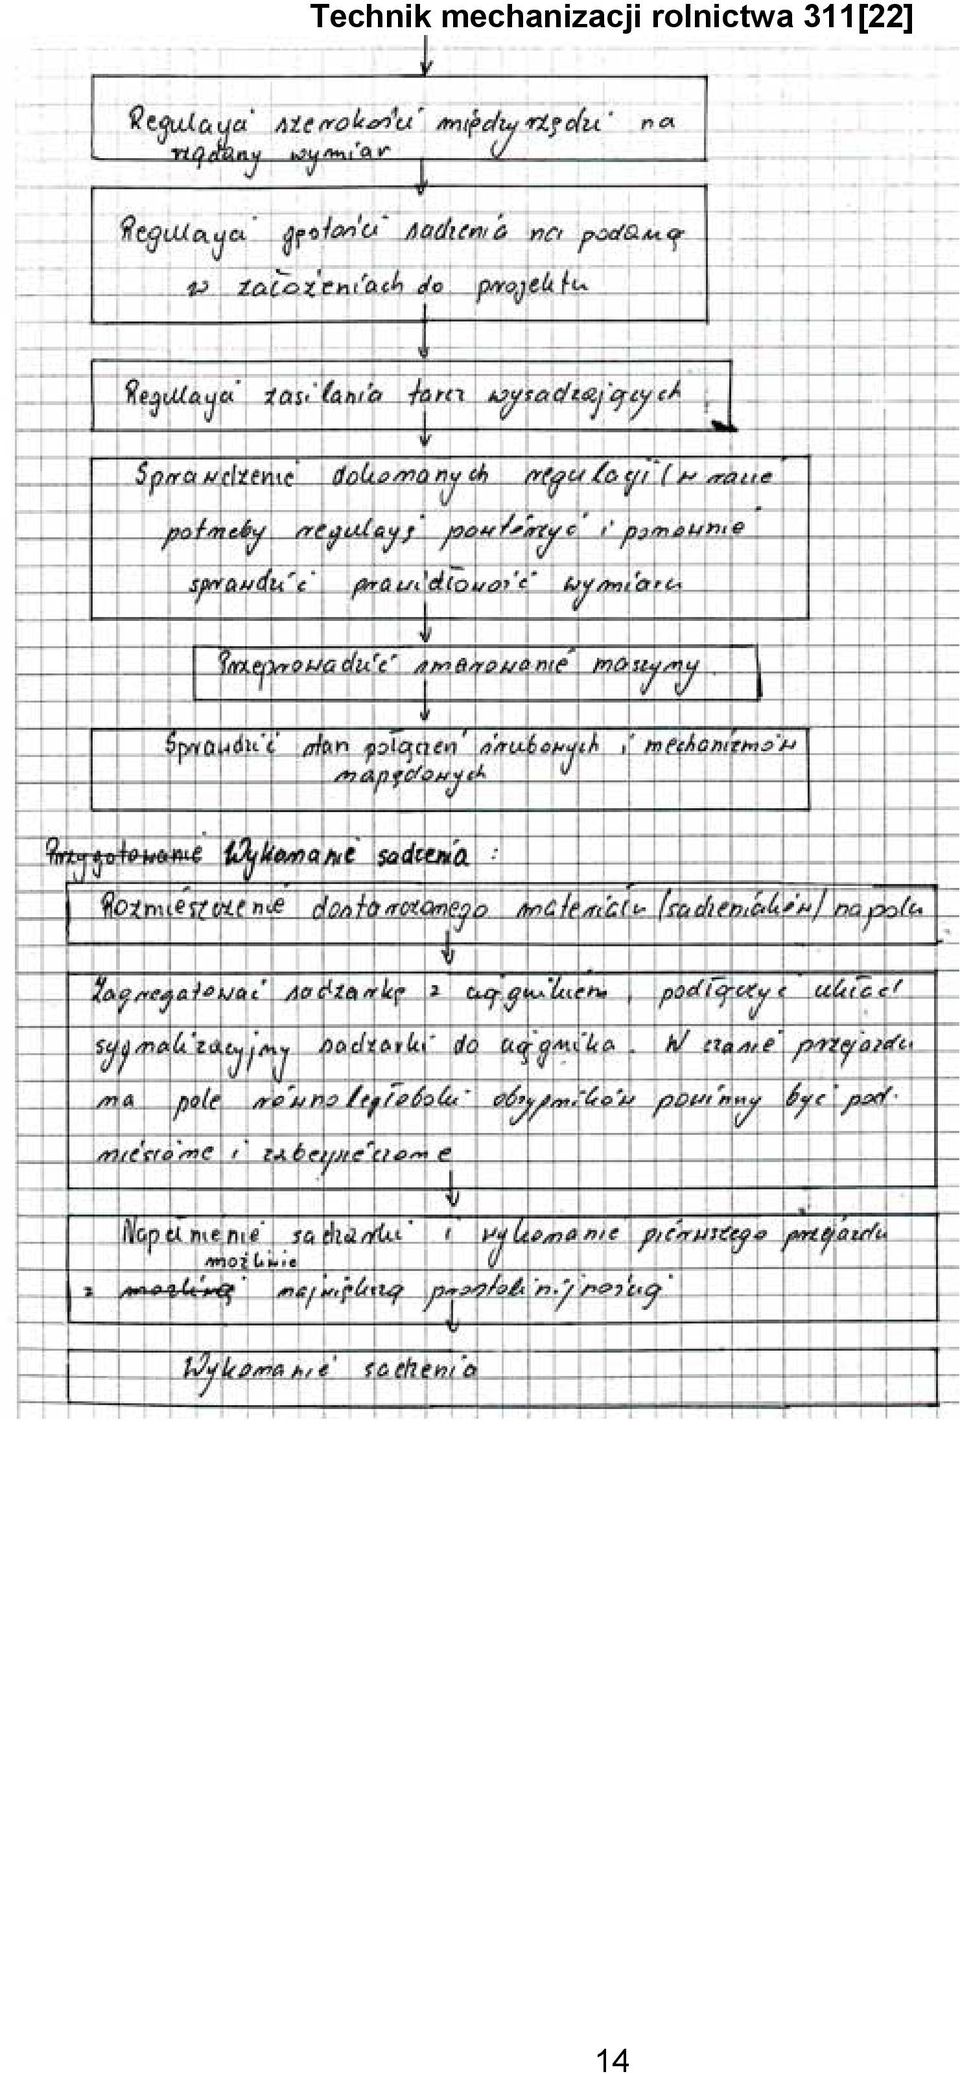 Technik mechanizacji rolnictwa 311[22]
Regulacja szerokości międzyrzędzi na
rządany wymiar
Regulacja gęstości sadzenia na podaną
w założeniach do projektu
Regulacja zasilania tarcz wysadzających
Sprawdzenie dokonanych regulacji (w razie
potrzeby regulację powtórzyć i ponownie
sprawdzić prawidłowość wymiaru
Przeprowadzić smarowanie maszyny
Sprawdzić stan połączeń śrubowych i mechanizmów
napędowych
Przygotowanie Wykonanie sadzenia :
Rozmieszczenie dostarczonego materiału (sadzeniaków) na polu
Zagregatować sadzarkę z ciągnikiem, podłączyć układ
sygnalizacyjny sadzarki do ciągnika. W czasie przejazdu
na pole równoległoboki obsypników powinny być pod-
niesione i zabezpieczone
Napełnienie sadzarki i wykonanie pierwszego przejazdu
możliwie
z możliwą największą prostolinijnością
Wykonanie sadzenia
14